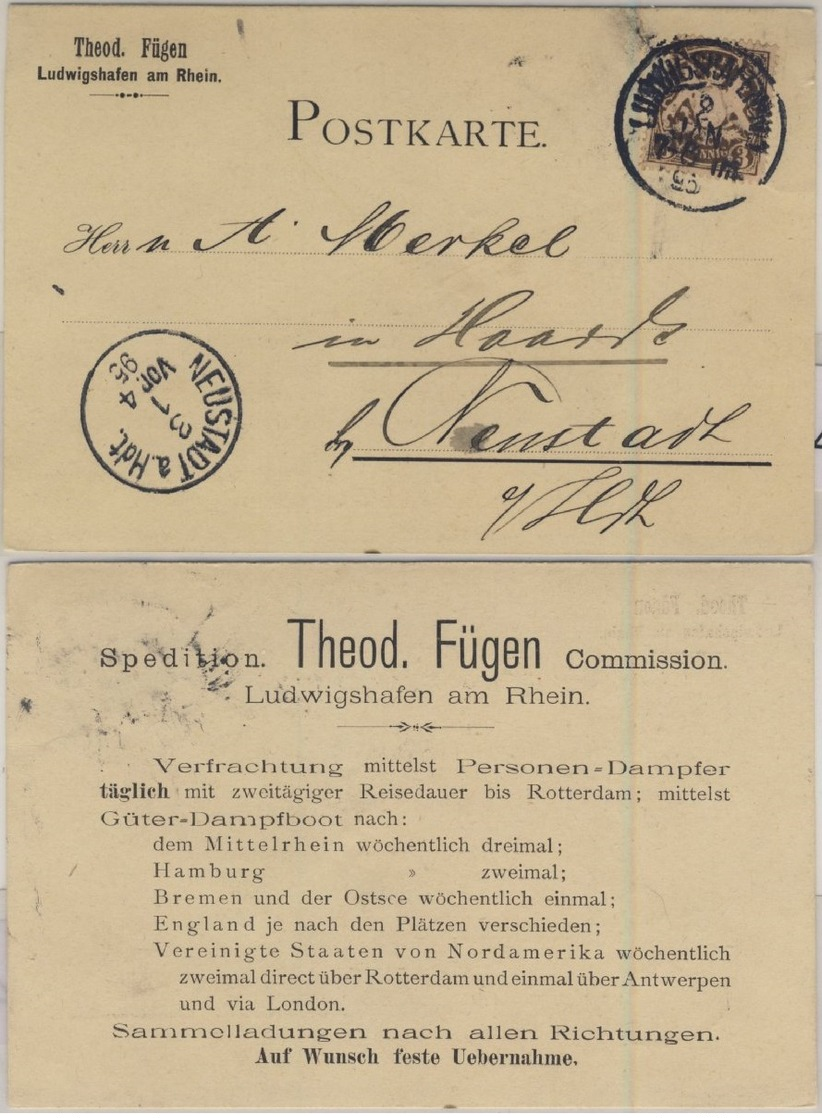 Theod. Fügen
Ludwigshafen am Rhein.
POSTKARTE.
LUDWIGSHAFEN
9
JAN
7-8
95
PFENNIG 3
Herrn A. Merkel
in Haardt
b/ Neustadt
a/Hdt
NEUSTADT a. Hdt.
31
Vor. 4
95
Theod. Fügen
Spedition. Theod. Fügen Commission.
Ludwigshafen am Rhein.
Verfrachtung mittelst Personen-Dampfer
täglich mit zweitägiger Reisedauer bis Rotterdam; mittelst
Güter-Dampfboot nach:
dem Mittelrhein wöchentlich dreimal;
Hamburg » zweimal;
Bremen und der Ostsee wöchentlich einmal;
England je nach den Plätzen verschieden;
Vereinigte Staaten von Nordamerika wöchentlich
zweimal direct über Rotterdam und einmal über Antwerpen
und via London.
Sammelladungen nach allen Richtungen.
Auf Wunsch feste Uebernahme.